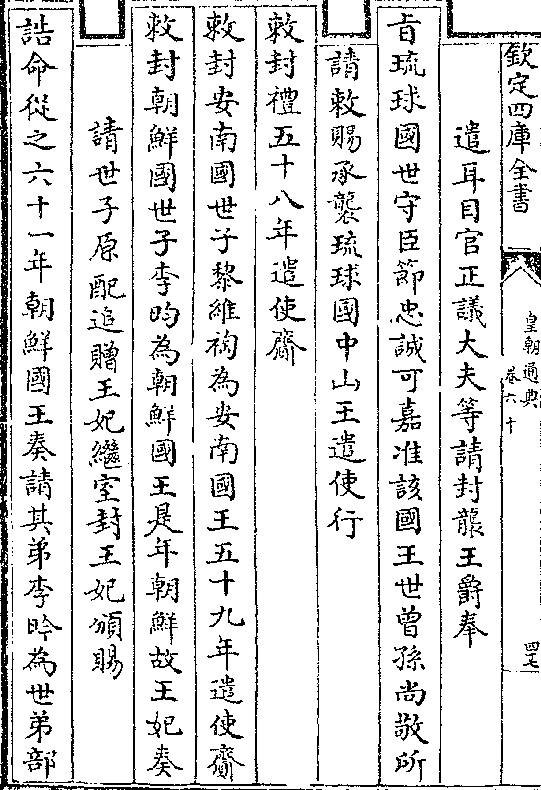 欽定四庫全書
皇朝通典
卷六十
四七
遣耳目官正議大夫等請封襲王爵奉
旨琉球國世守臣節忠誠可嘉准該國王世曾孫尚敬所
請敕賜承襲琉球國中山王遣使行
敕封禮五十八年遣使齎
敕封安南國世子黎維祹為安南國王五十九年遣使齎
敕封朝鮮國世子李昀為朝鮮國王是年朝鮮故王妃奏
請世子原配追贈王妃繼室封王妃頒賜
誥命從之六十一年朝鮮國王奏請其弟李昑為世弟部